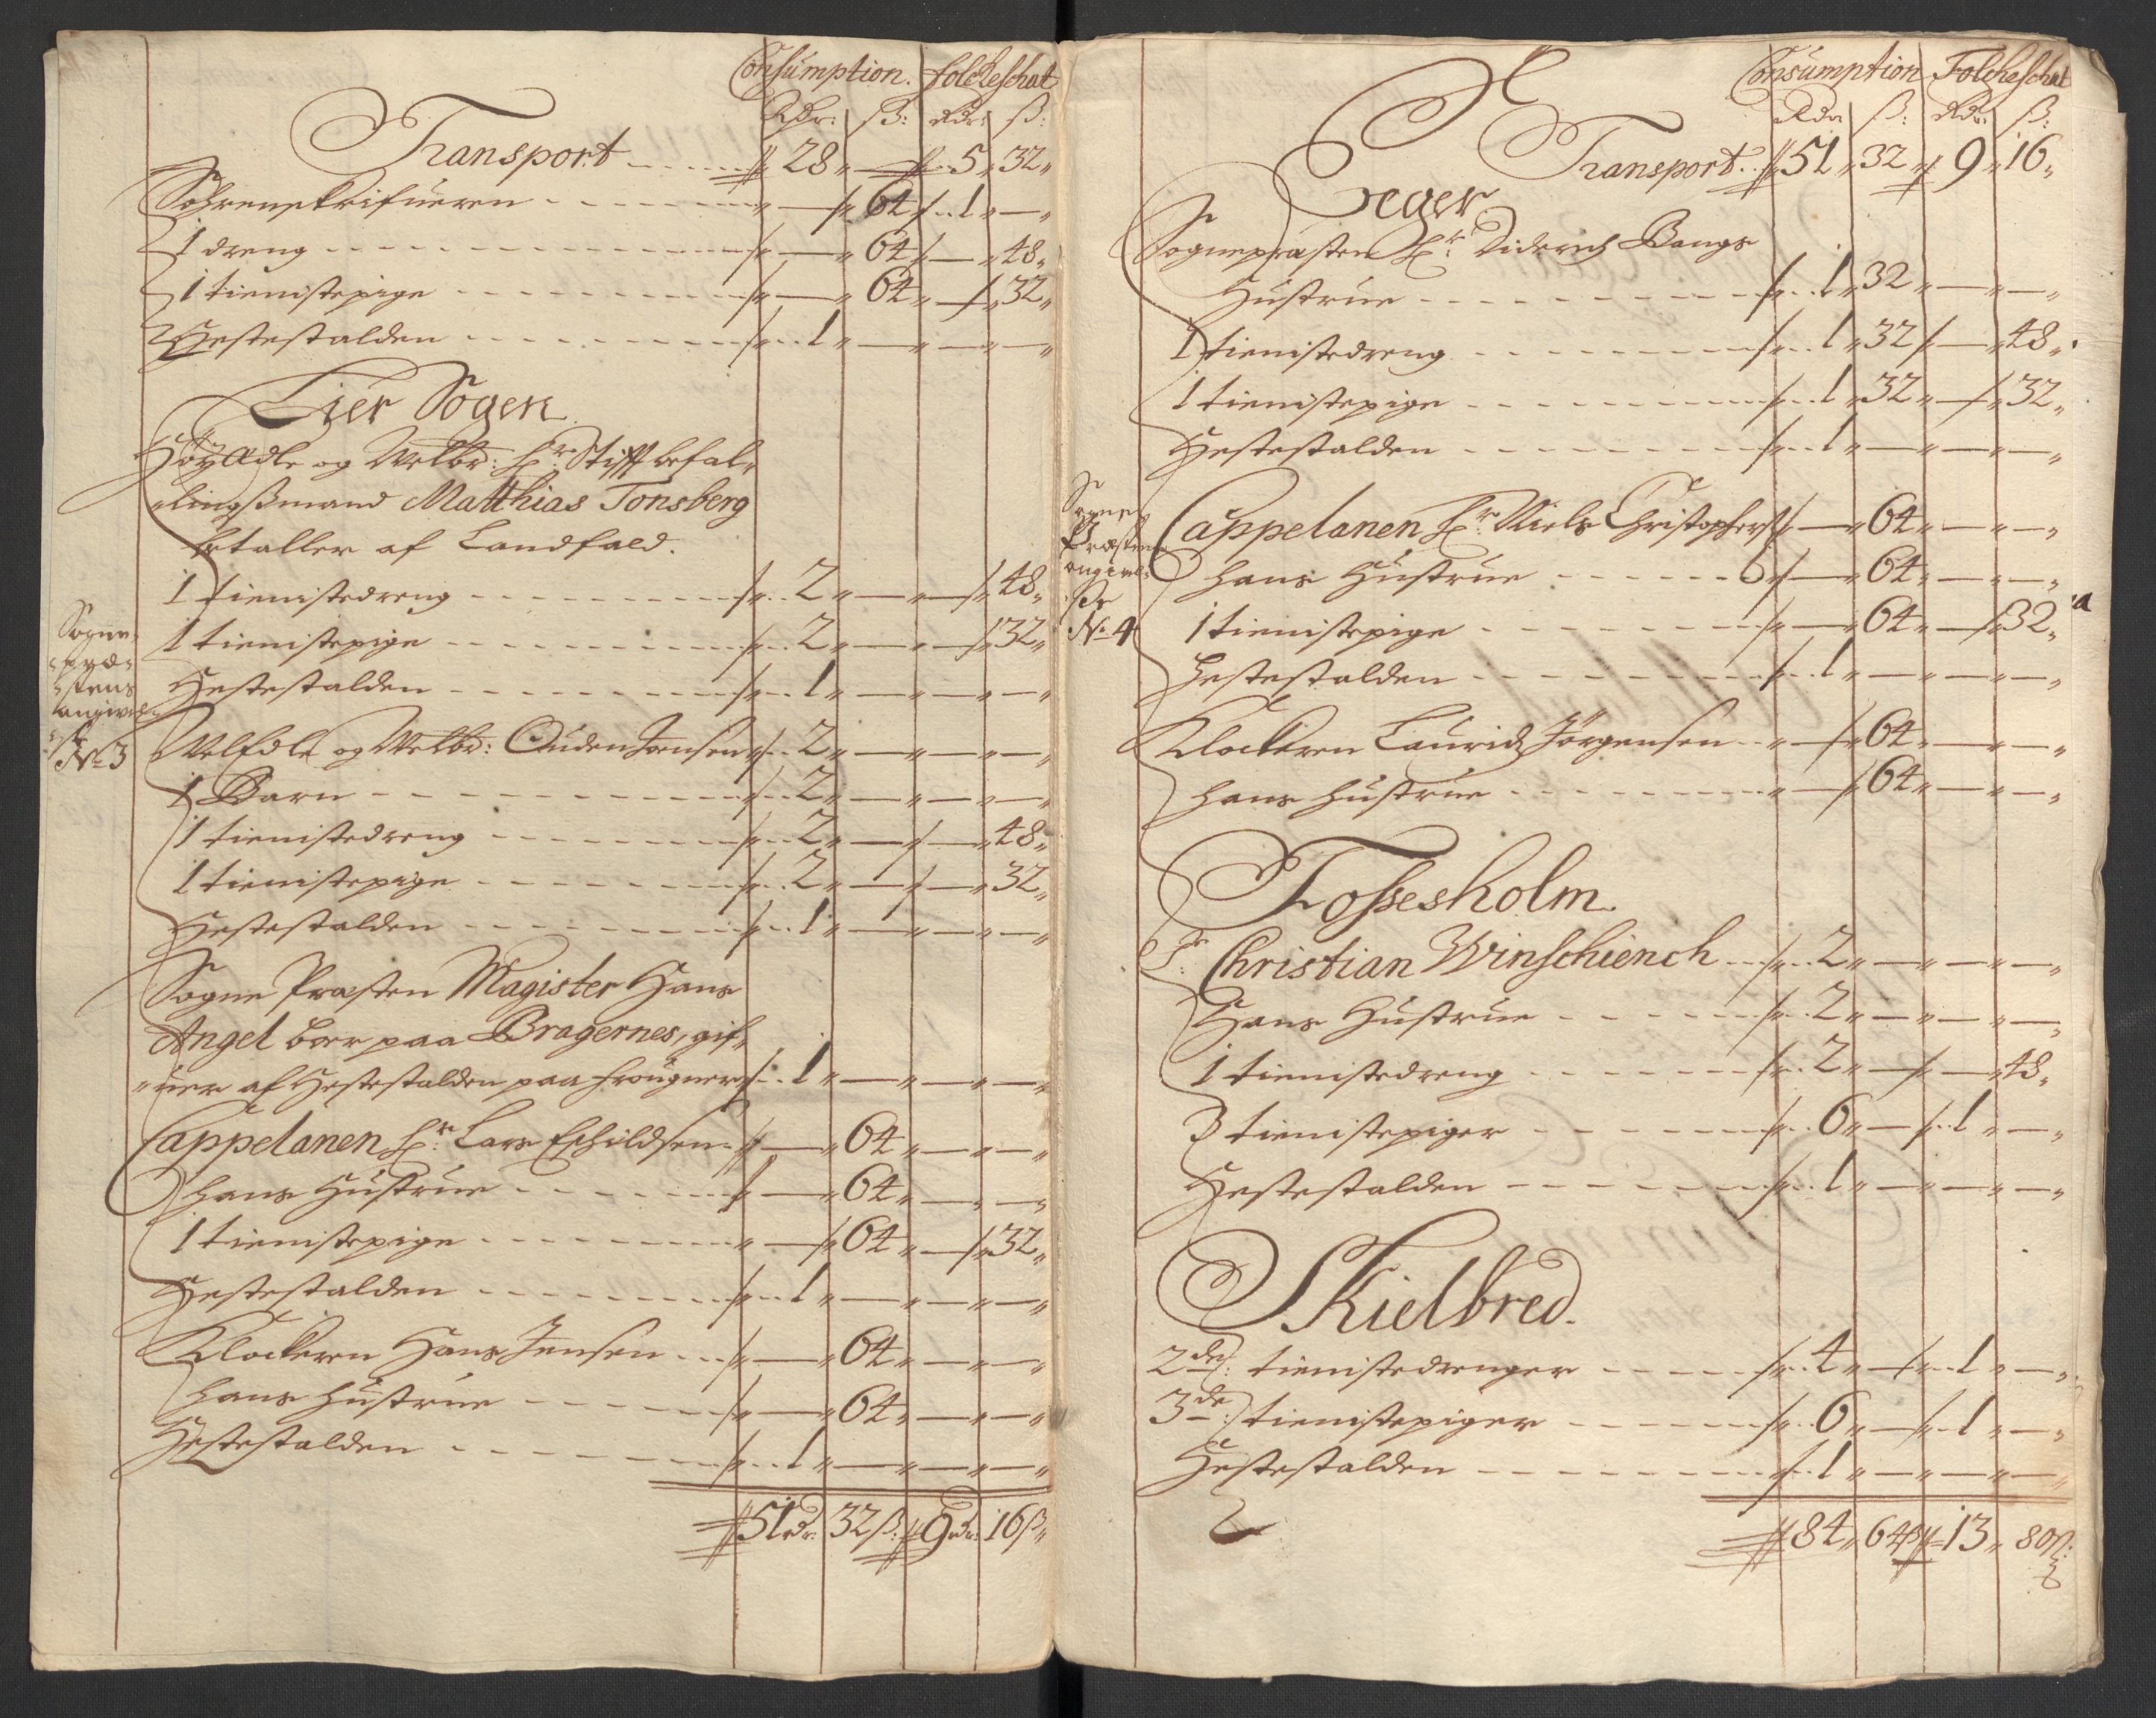 Consumption. folcheschat
Rdr: ß: Rdr: ß:
Transport 28 " — 5 " 32 "
Sohrenskrifueren — 64 1 " —
1 dreng — 64 — 48 "
1 tienistepige — 64 — 32 "
Hestestalden 1 " — — —
Lier Sogen
Høyædle og Welbr: Hr: Stiffbefal-
lingsmand Matthias Tonsberg
betaller af Landfald.
1 tienistedreng 2 " — — 48 "
1 tienistepige 2 " — — 32 "
Hestestalden 1 " — — —
Sogne-
præ-
stens
angivel-
se
No 3
WelEdle og Welbr: Ouden Jensen 2 " — — —
1 Barn 2 " — — —
1 tienistedreng 2 " — — 48 "
1 tienistepige 2 " — — 32 "
Hestestalden 1 " — — —
Sogne Præsten Magister Hans
Angel boer paa Bragernes, gif-
uer af Hestestalden paa frougner 1 " — — —
Cappelanen Hr: Lars Eschildsen — 64 " — —
hans Hustrue — 64 " — —
1 tienistepige — 64 " — 32 "
Hestestalden 1 " — — —
Klockeren Hans Jensen — 64 " — —
hans hustrue — 64 " — —
Hestestalden 1 " — — —
51 rdr. 32 ß: 9 rdr. 16 ß
Consumption Folcheschat
Rdr ß: Rdr: ß:
Transport 51 " 32 " 9 " 16 "
Eeger
Sognepræsten Hr: Diderich Bangs
Hustrue 1 " 32 " — —
1 tienistedreng 1 " 32 — 48 "
1 tienistepige 1 " 32 " — 32 "
Hestestalden 1 " — — —
Sogne
Præstens
angivel-
se
No 4
Cappelanen Hr: Niels Christophers — 64 " — —
hans Hustrue — 64 " — —
1 tienistepige — 64 " — 32 "
Hestestalden 1 " — — —
Klockeren Laurids Jørgensen — 64 " — —
hans hustrue — 64 " — —
Fossesholm.
Sr: Christian Winschiench 2 " — — —
Hans Hustrue 2 " — — —
1 tienistedreng 2 " — — 48 "
3 tienistepiger 6 " — 1 " —
Hestestalden 1 " — — —
Skielbred.
2de: tienistedrenger 4 " — 1 " —
3de: tienistepiger 6 " — 1 " —
Hestestalden 1 " — — —
84 " 64 ß 13 " 80 ß: